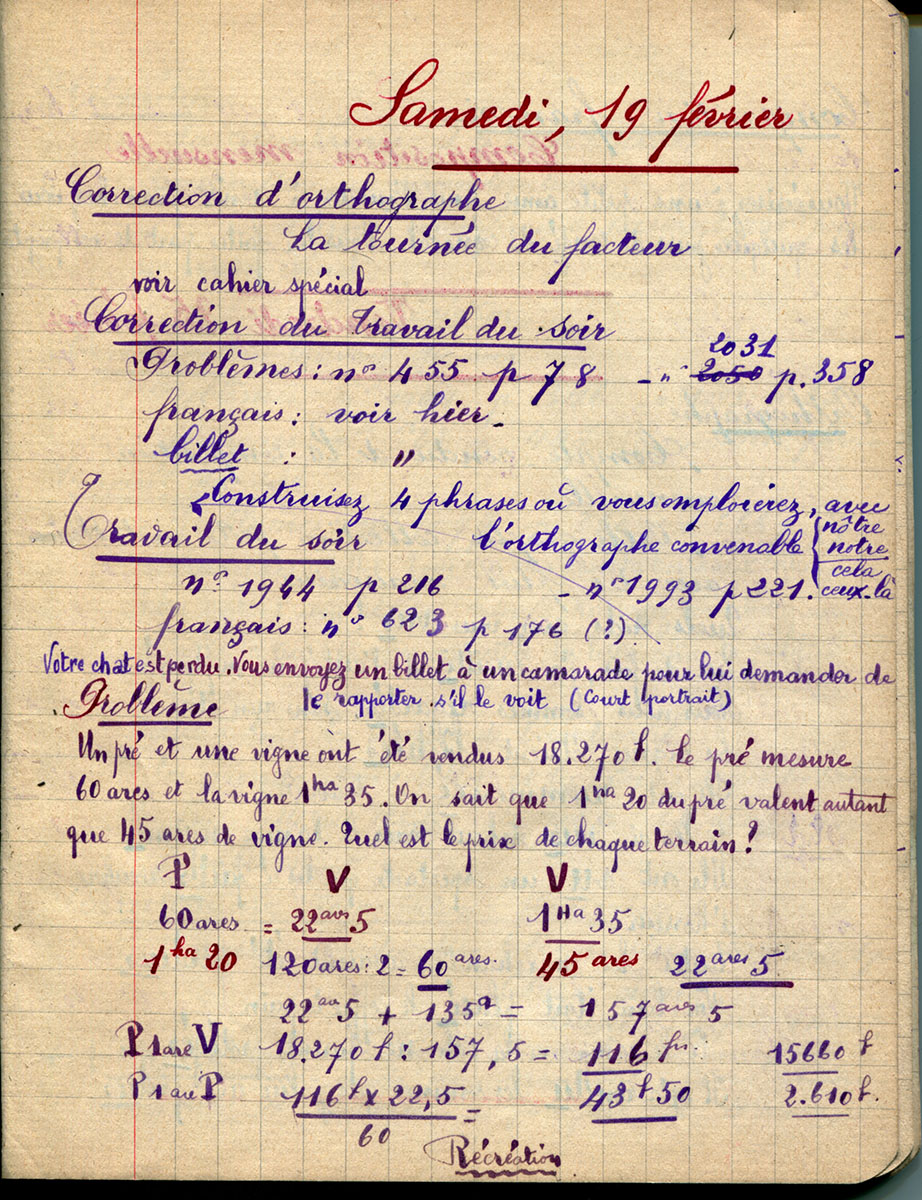 Samedi, 19 février
Correction d'orthographe
La tournée du facteur
voir cahier spécial
Correction du travail du soir
2031
Problèmes : n° 455 p 78 - n° 2050 p. 358
français : voir hier.
billet : "
Construisez 4 phrases où vous emploierez, avec
Travail du soir l'orthographe convenable { nôtre
notre
cela
n° 1944 p 216 - n° 1993 p 221. ceux-là
français : n° 623 p 176 (?)
Votre chat est perdu. Vous envoyez un billet à un camarade pour lui demander de
Problème le rapporter s'il le voit (Court portrait)
Un pré et une vigne ont été vendus 18.270 f. Le pré mesure
60 ares et la vigne 1 ha 35. On sait que 1 ha 20 du pré valent autant
que 45 ares de vigne. Quel est le prix de chaque terrain ?
P V V
60 ares = 22 ares 5 1 Ha 35
1 ha 20 120 ares : 2 = 60 ares. 45 ares 22 ares 5
22 ares 5 + 135 a = 157 ares 5
P 1 are V 18.270 f : 157,5 = 116 fr. 15660 f
P 1 are P 116 f x 22,5 = 43 f 50 2.610 f.
60
Récréation